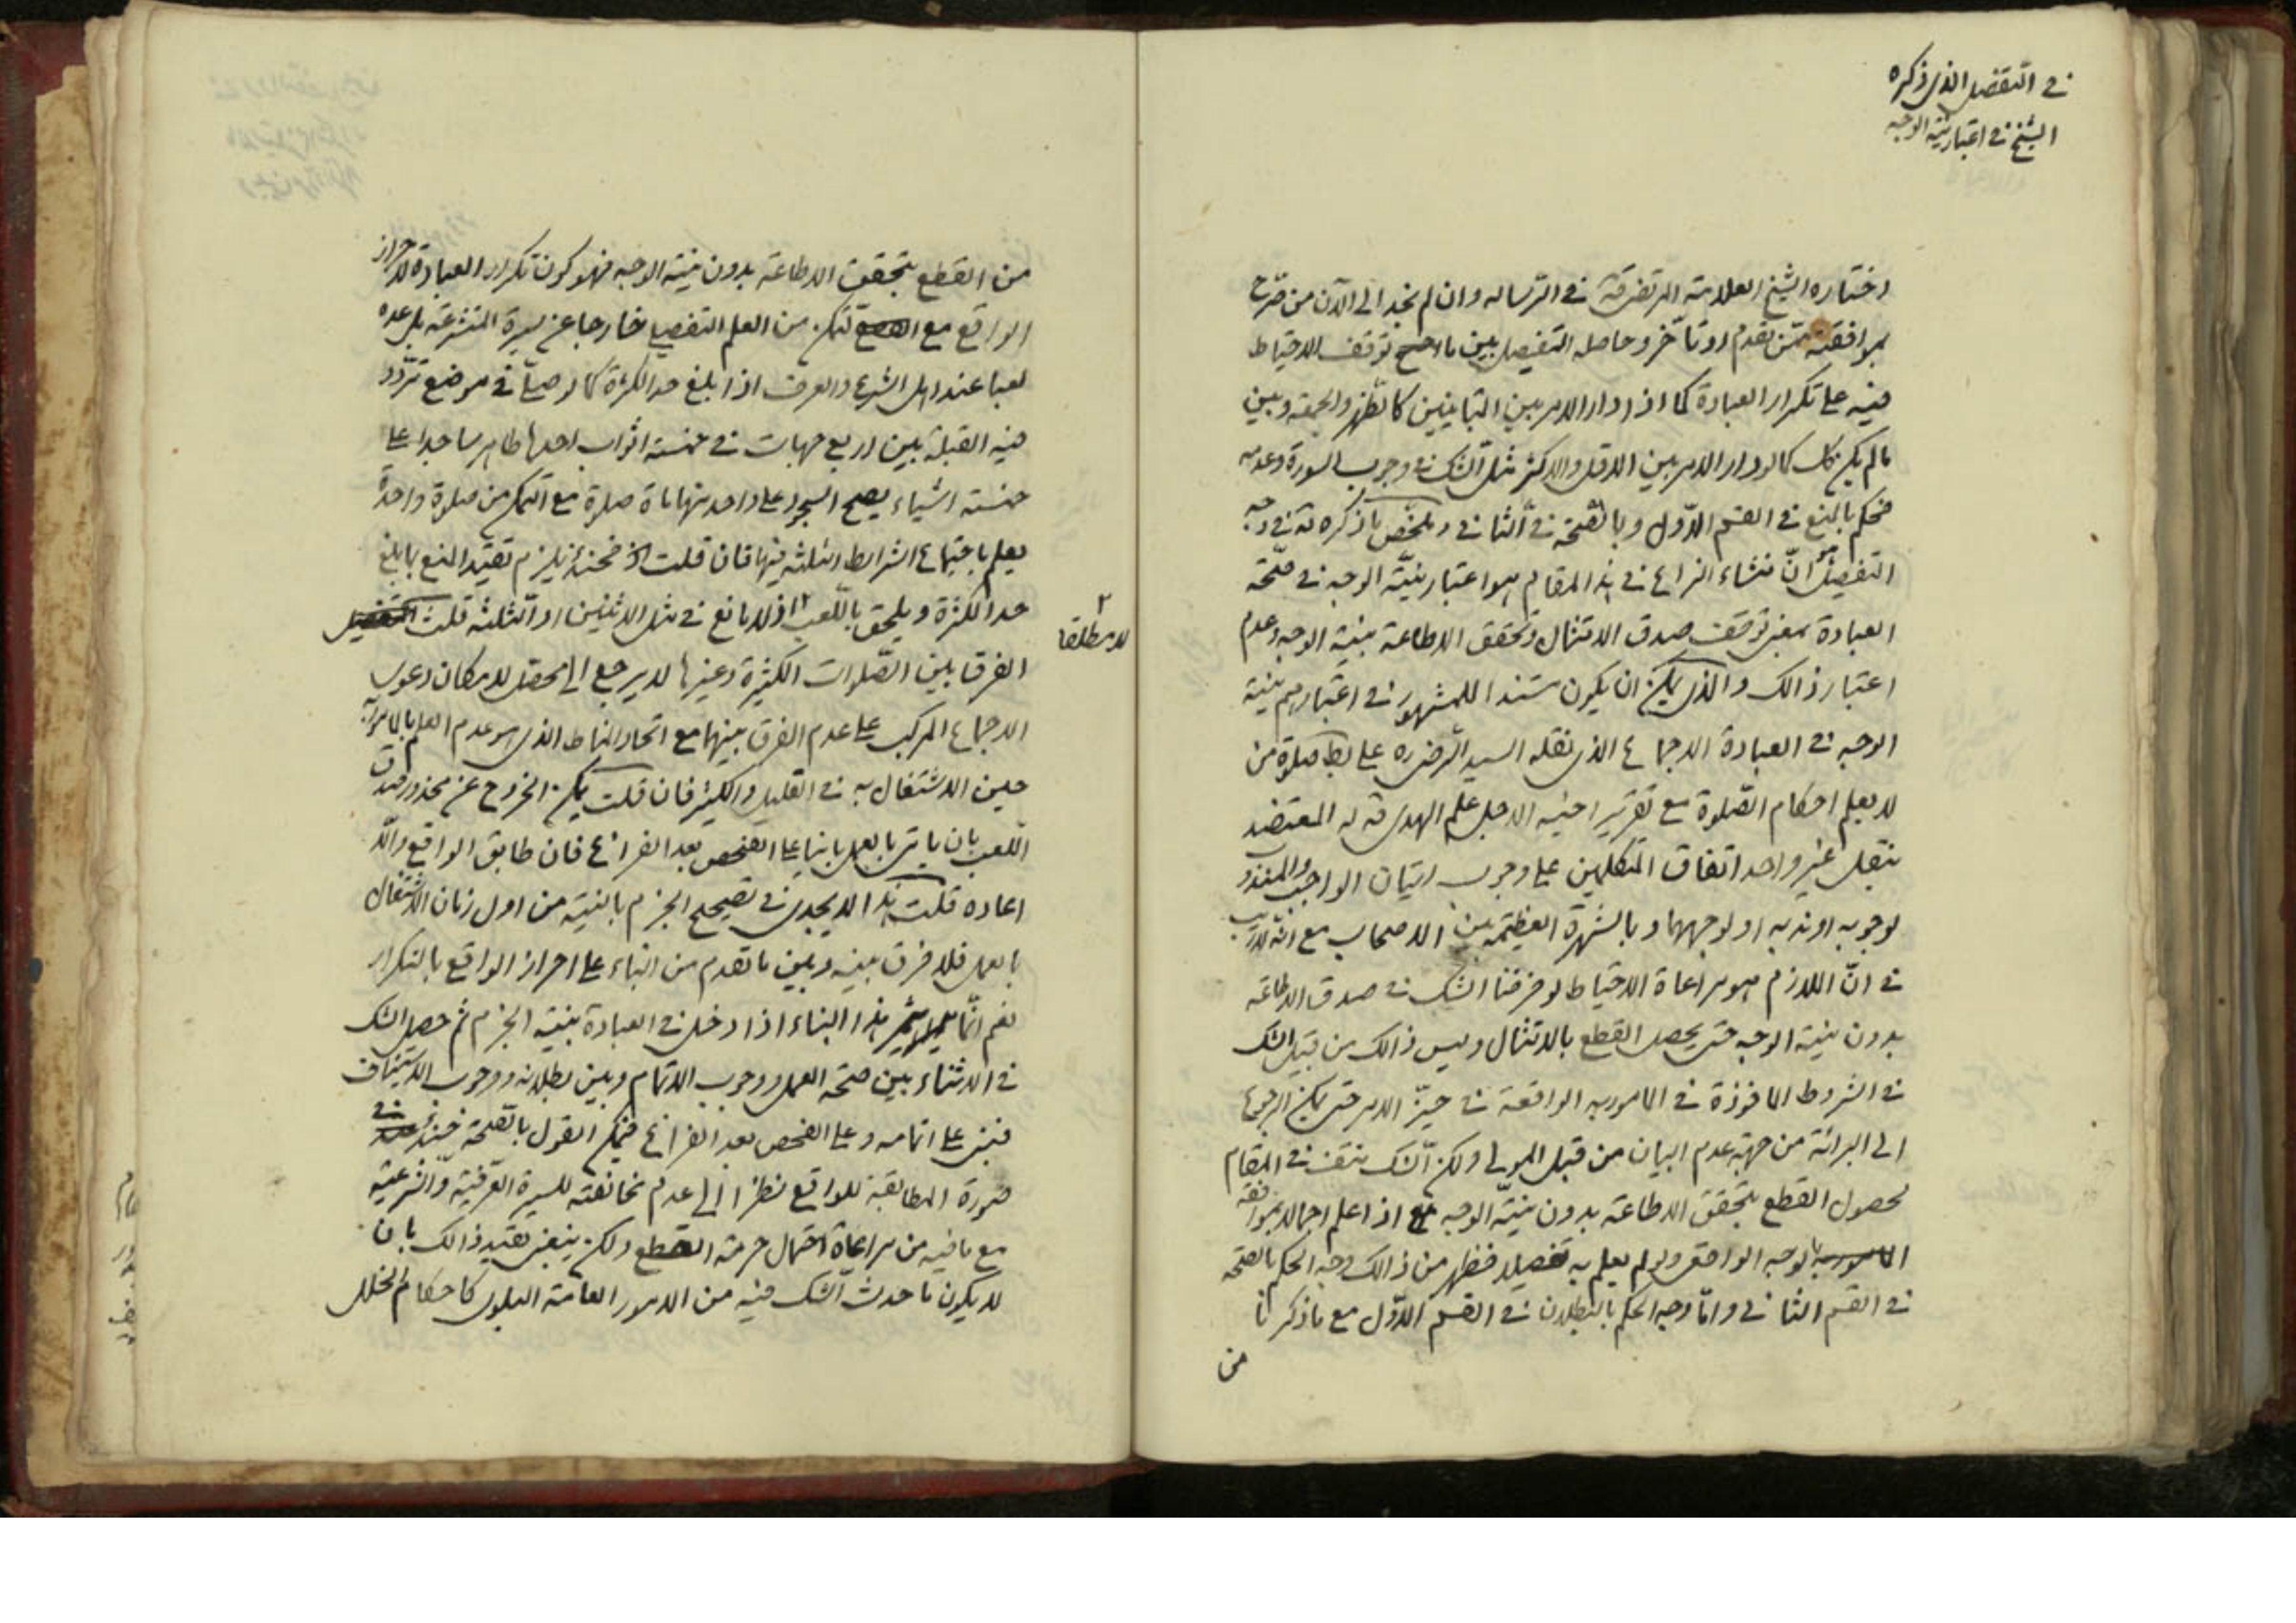 في التفضيل الذى ذكره
الشيخ في اعتبار نيّة الوجه
اختاره الشيخ العلامة المرتضى قده في الرّساله وان لم نجد الى الآن من صرّح
بموافقته ممّن تقدم او تأخّر وحاصله التفصيل بين ما توقف الاحتياط
فيه على تكرار العبادة كما اذا دار الامر بين المتباينين كالظهر والجمعة وبين
ما لم يكن كك كما لو دار الامر بين الاقل والاكثر مثل الشك في وجوب السورة وعدمه
فحكم بالمنع في القسم الاوّل وبالصّحة في الثاني وملخّص ما ذكره ره في وجه
التفصيل هو انّ منشاء النزاع في هذا المقام هو اعتبار نيّة الوجه في صحّة
العبادة بمعنى توقف صدق الامتثال وتحقق الاطاعة بنية الوجه وعدم
اعتبار ذالك والذى يمكن ان يكون مستندا للمشهور في اعتبارهم نية
الوجه في العبادة الاجماع الذى نقله السيد الرّضى ره على بط صلوة من
لا يعلم احكام الصّلوة مع تقرير اخيه الاجل علم الهدى قده له المعتضد
بنقل غير واحد اتفاق المتكلمين على وجوب اتيان الواجب والمندوب
لوجوبه او ندبه او لوجههما وبالشهرة العظيمه بين الاصحاب مع انه لا ريب
في انّ اللازم هو مراعاة الاحتياط لو فرضنا الشك في صدق الاطاعة
بدون نية الوجه حتى يحصل القطع بالامتثال وليس ذالك من قبيل الشك
في الشروط الماخوذة في المامور به الواقعة في حيّز الامر حتى يمكن الرجوع
الى البرائة من جهة عدم البيان من قبل المولى ولكن الشك منتف في المقام
لحصول القطع بتحقق الاطاعة بدون نيّة الوجه اذا علم اجمالا بموافقة
المامور به بالوجه الواقعى ولو لم يعلم به تفصيلا فظهر من ذالك وجه الحكم بالصّحة
في القسم الثاني وامّا وجه الحكم بالبطلان في القسم الاوّل مع ما ذكرنا
من
من القطع بتحقق الاطاعة بدون نية الوجه فهو كون تكرار العبادة لاحراز
الواقع مع التمكن من العلم التفصيلى خارجا عن سيرة المتشرعة بل عده
لعبا عند اهل الشرع والعرف اذا بلغ حد الكثرة كما لو صلّى في موضع تردّد
فيه القبلة بين اربع جهات في خمسة اثواب احدها طاهر ساجدا على
خمسة اشياء يصح السجود على واحد منها ماة صلوة مع التمكن من صلوة واحدة
يعلم باجتماع الشرايط الثلثه فيها فان قلت فحينئذ يلزم تقييد المنع بما بلغ
حد الكثرة ويلحق باللّعب اذ لا مانع في مثل الاثنين او الثلثه قلت
لا مطلقا
الفرق بين الصّلوات الكثيرة وغيرها لا يرجع الى محصّل لامكان دعوى
الاجماع المركب على عدم الفرق بينهما مع اتحاد المناط الذى هو عدم العلم بالمامور به
حين الاشتغال به في القليل والكثير فان قلت يمكن الخروج عن محذور صدق
اللّعب بان ياتى بالعمل بانيا على الفحص بعد الفراغ فان طابق الواقع والّا
اعاده قلت هذا لا يجدى في تصحيح الجزم بالنية من اول زمان الاشتغال
بالعمل فلا فرق بينه وبين ما تقدم من البناء على احراز الواقع بالتكرار
نعم انّما يثمر هذا البناء اذا دخل في العبادة بنية الجزم ثم حصل الشك
في الاثناء بين صحّة العمل ووجوب الاتمام وبين بطلانه ووجوب الاستيناف
فبنى على اتمامه وعلى الفحص بعد الفراغ فيمكن القول بالصّحة حينئذ في
صورة المطابقة للواقع نظرا الى عدم مخالفته للسيرة العرفيّة والشرعيّة
مع ما فيه من مراعاة احتمال حرمة القطع ولكن ينبغى تقييد ذالك بان
لا يكون ما حدث الشك فيه من الامور العامّة البلوى كاحكام الخلل